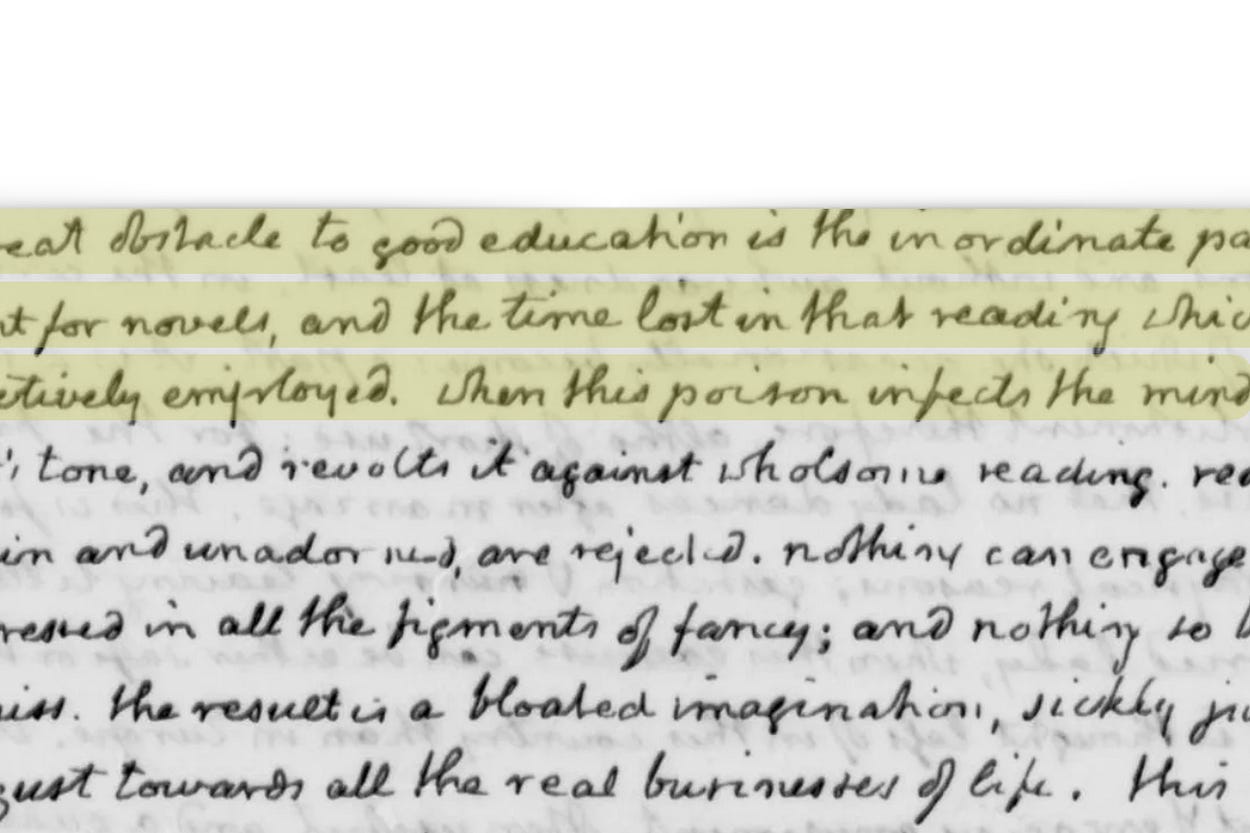 eat obstacle to good education is the inordinate pa
t for novels, and the time lost in that reading whic
ctively employed. when this poison infects the mind
tone, and revolts it against wholsome reading. rea
in and unadorned, are rejected. nothing can engage
ressed in all the figments of fancy; and nothing so b
iss. the result is a bloated imagination, sickly ju
gust towards all the real businesses of life. this